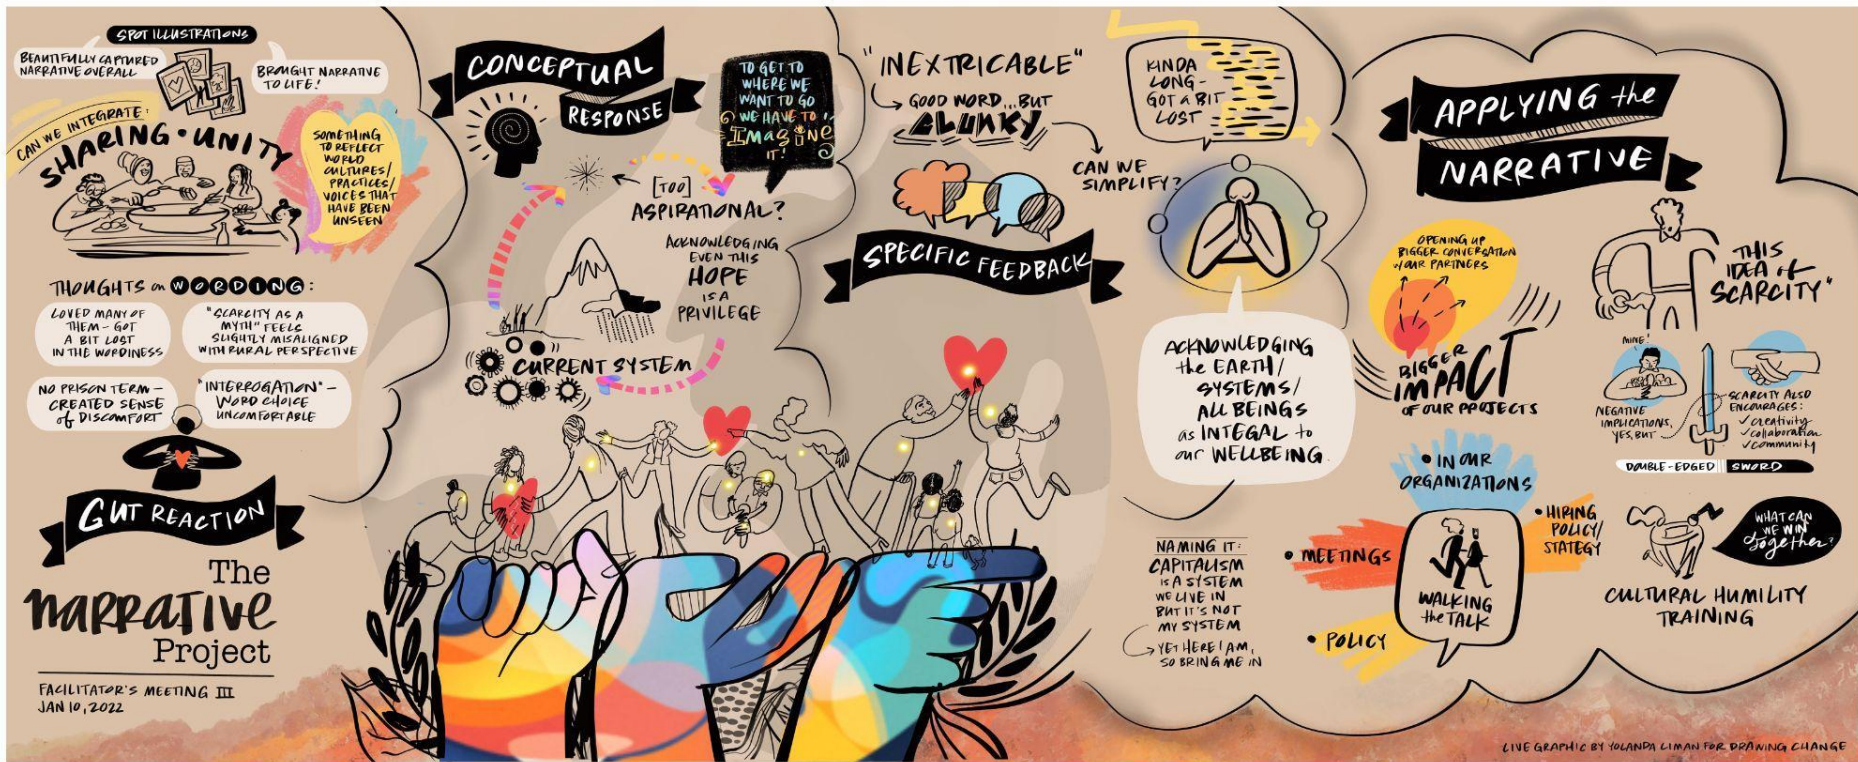 SPOT ILLUSTRATIONS
BEAUTIFULLY CAPTURED
NARRATIVE OVERALL
BROUGHT NARRATIVE
TO LIFE!
CAN WE INTEGRATE:
SHARING • UNITY
SOMETHING
TO REFLECT
WORLD
CULTURES/
PRACTICES/
VOICES THAT
HAVE BEEN
UNSEEN
THOUGHTS on WORDING:
LOVED MANY OF
THEM - GOT
A BIT LOST
IN THE WORDINESS
"SCARCITY AS A
MYTH" FEELS
SLIGHTLY MISALIGNED
WITH RURAL PERSPECTIVE
NO PRISON TERM -
CREATED SENSE
of DISCOMFORT
"INTERROGATION" -
WORD CHOICE
UNCOMFORTABLE
GUT REACTION
The
NARRATIVE
Project
FACILITATOR'S MEETING III
JAN 10, 2022
CONCEPTUAL
RESPONSE
TO GET TO
WHERE WE
WANT TO GO
WE HAVE TO
IMAGINE
IT!
[TOO]
ASPIRATIONAL?
ACKNOWLEDGING
EVEN THIS
HOPE
IS A
PRIVILEGE
CURRENT SYSTEM
"INEXTRICABLE"
GOOD WORD...BUT
CLUNKY
CAN WE
SIMPLIFY?
KINDA
LONG-
GOT A BIT
LOST
SPECIFIC FEEDBACK
ACKNOWLEDGING
the EARTH/
SYSTEMS/
ALL BEINGS
as INTEGAL to
our WELLBEING.
NAMING IT:
CAPITALISM
IS A SYSTEM
WE LIVE IN
BUT IT'S NOT
MY SYSTEM
YET HERE I AM,
SO BRING ME IN
APPLYING the
NARRATIVE
OPENING UP
BIGGER CONVERSATION
w/OUR PARTNERS
BIGGER
IMPACT
OF OUR PROJECTS
THIS
IDEA of
SCARCITY"
MINE!
NEGATIVE
IMPLICATIONS,
YES, BUT
SCARCITY ALSO
ENCOURAGES:
✓ creativity
✓ collaboration
✓ community
DOUBLE-EDGED SWORD
• IN OUR
ORGANIZATIONS
• HIRING
POLICY/
STATEGY
• MEETINGS
WALKING
the TALK
• POLICY
WHAT CAN
WE WIN
together?
CULTURAL HUMILITY
TRAINING
LIVE GRAPHIC BY YOLANDA LIMAN FOR DRAWING CHANGE